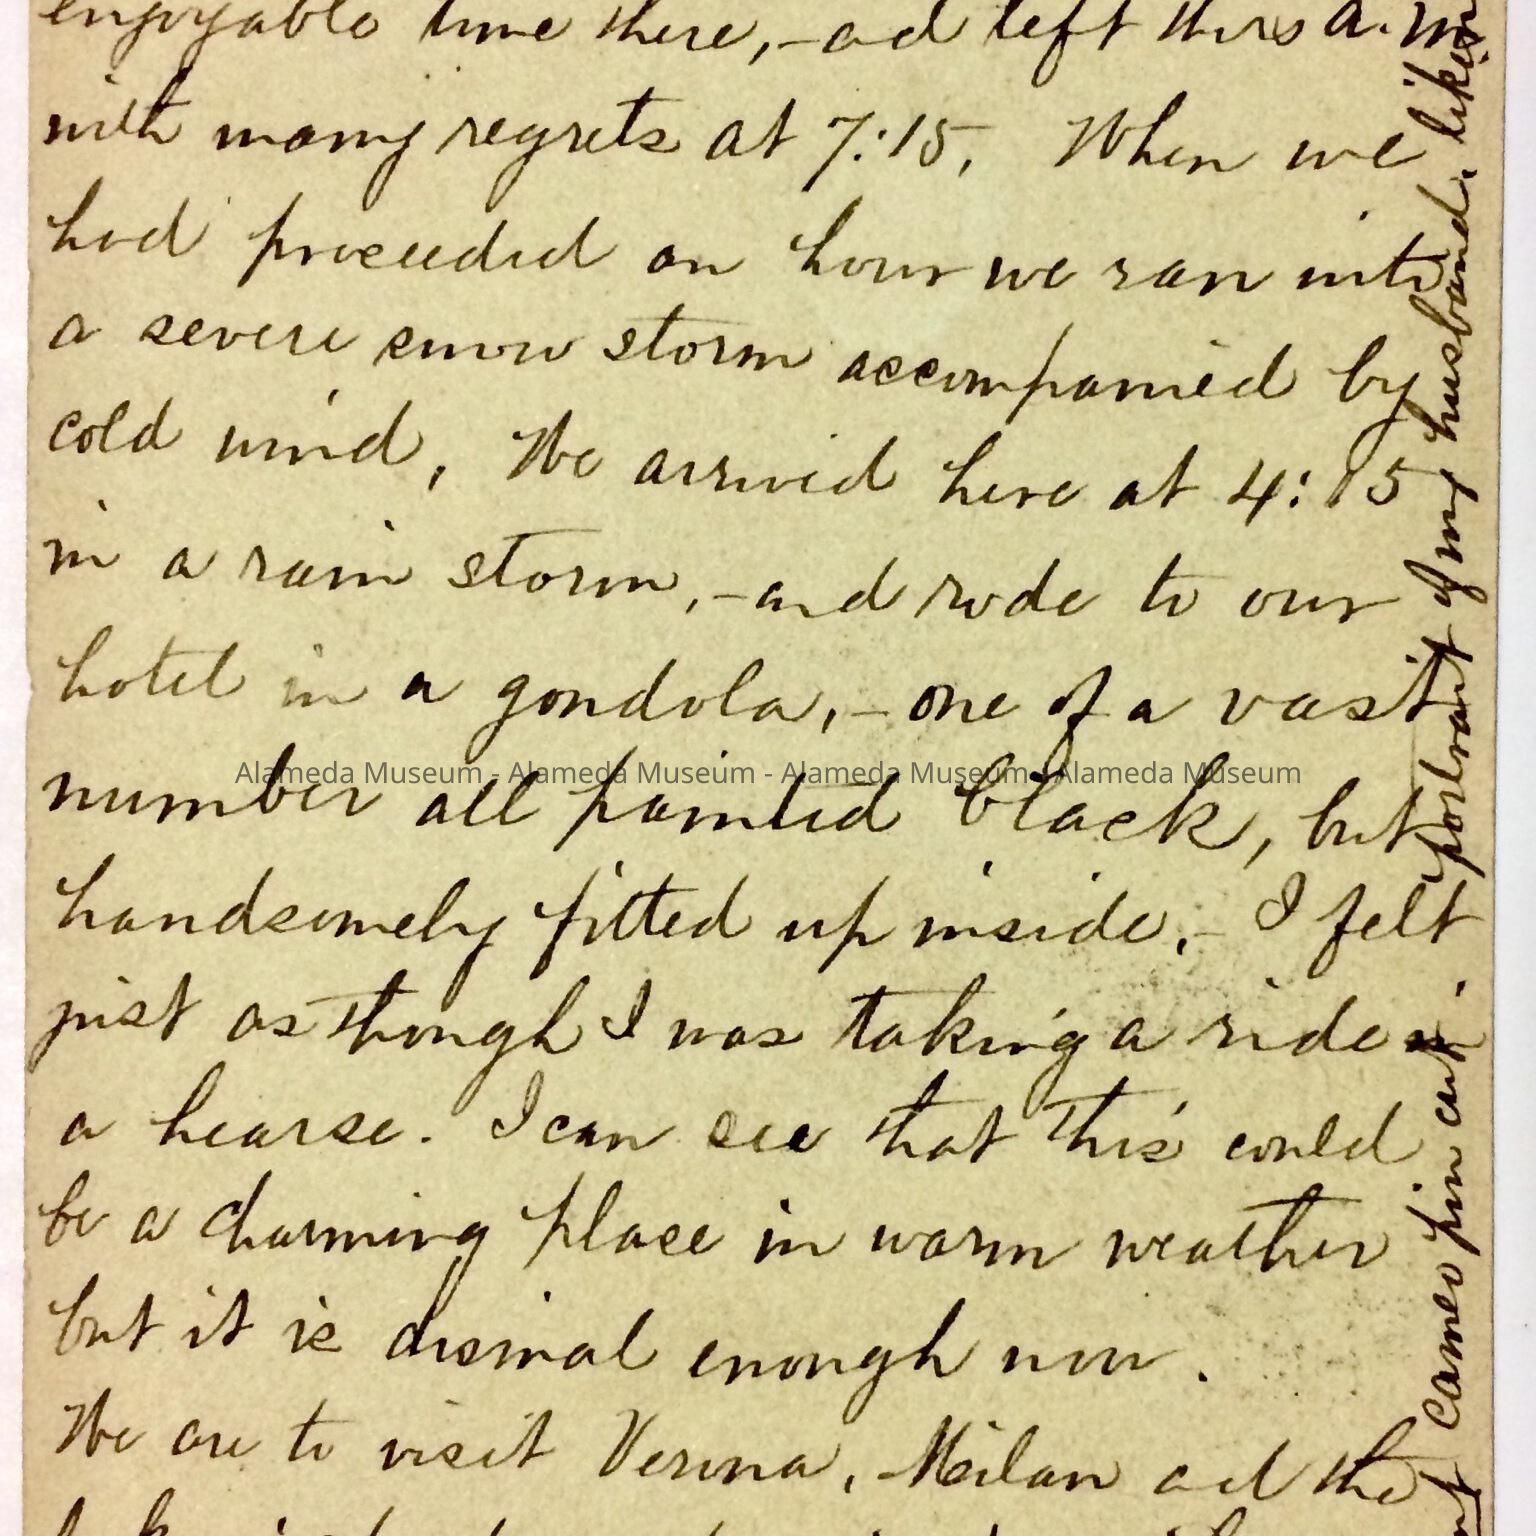 enjoyable time there, - ad left this a.m.
with many regrets at 7:15. When we
had proceeded an hour we ran into
a severe snow storm accompanied by
cold wind, We arrived here at 4:15
in a rain storm, - and rode to our
hotel in a gondola, - one of a vast
number all painted black, but
handsomely fitted up inside, - I felt
just as though I was taking a ride in
a hearse. I can see that this could
be a charming place in warm weather
but it is dismal enough now.
We are to visit Verona, Milan ad the
cameo pin cut. portrait of my husband, likes
Alameda Museum - Alameda Museum - Alameda Museum - Alameda Museum